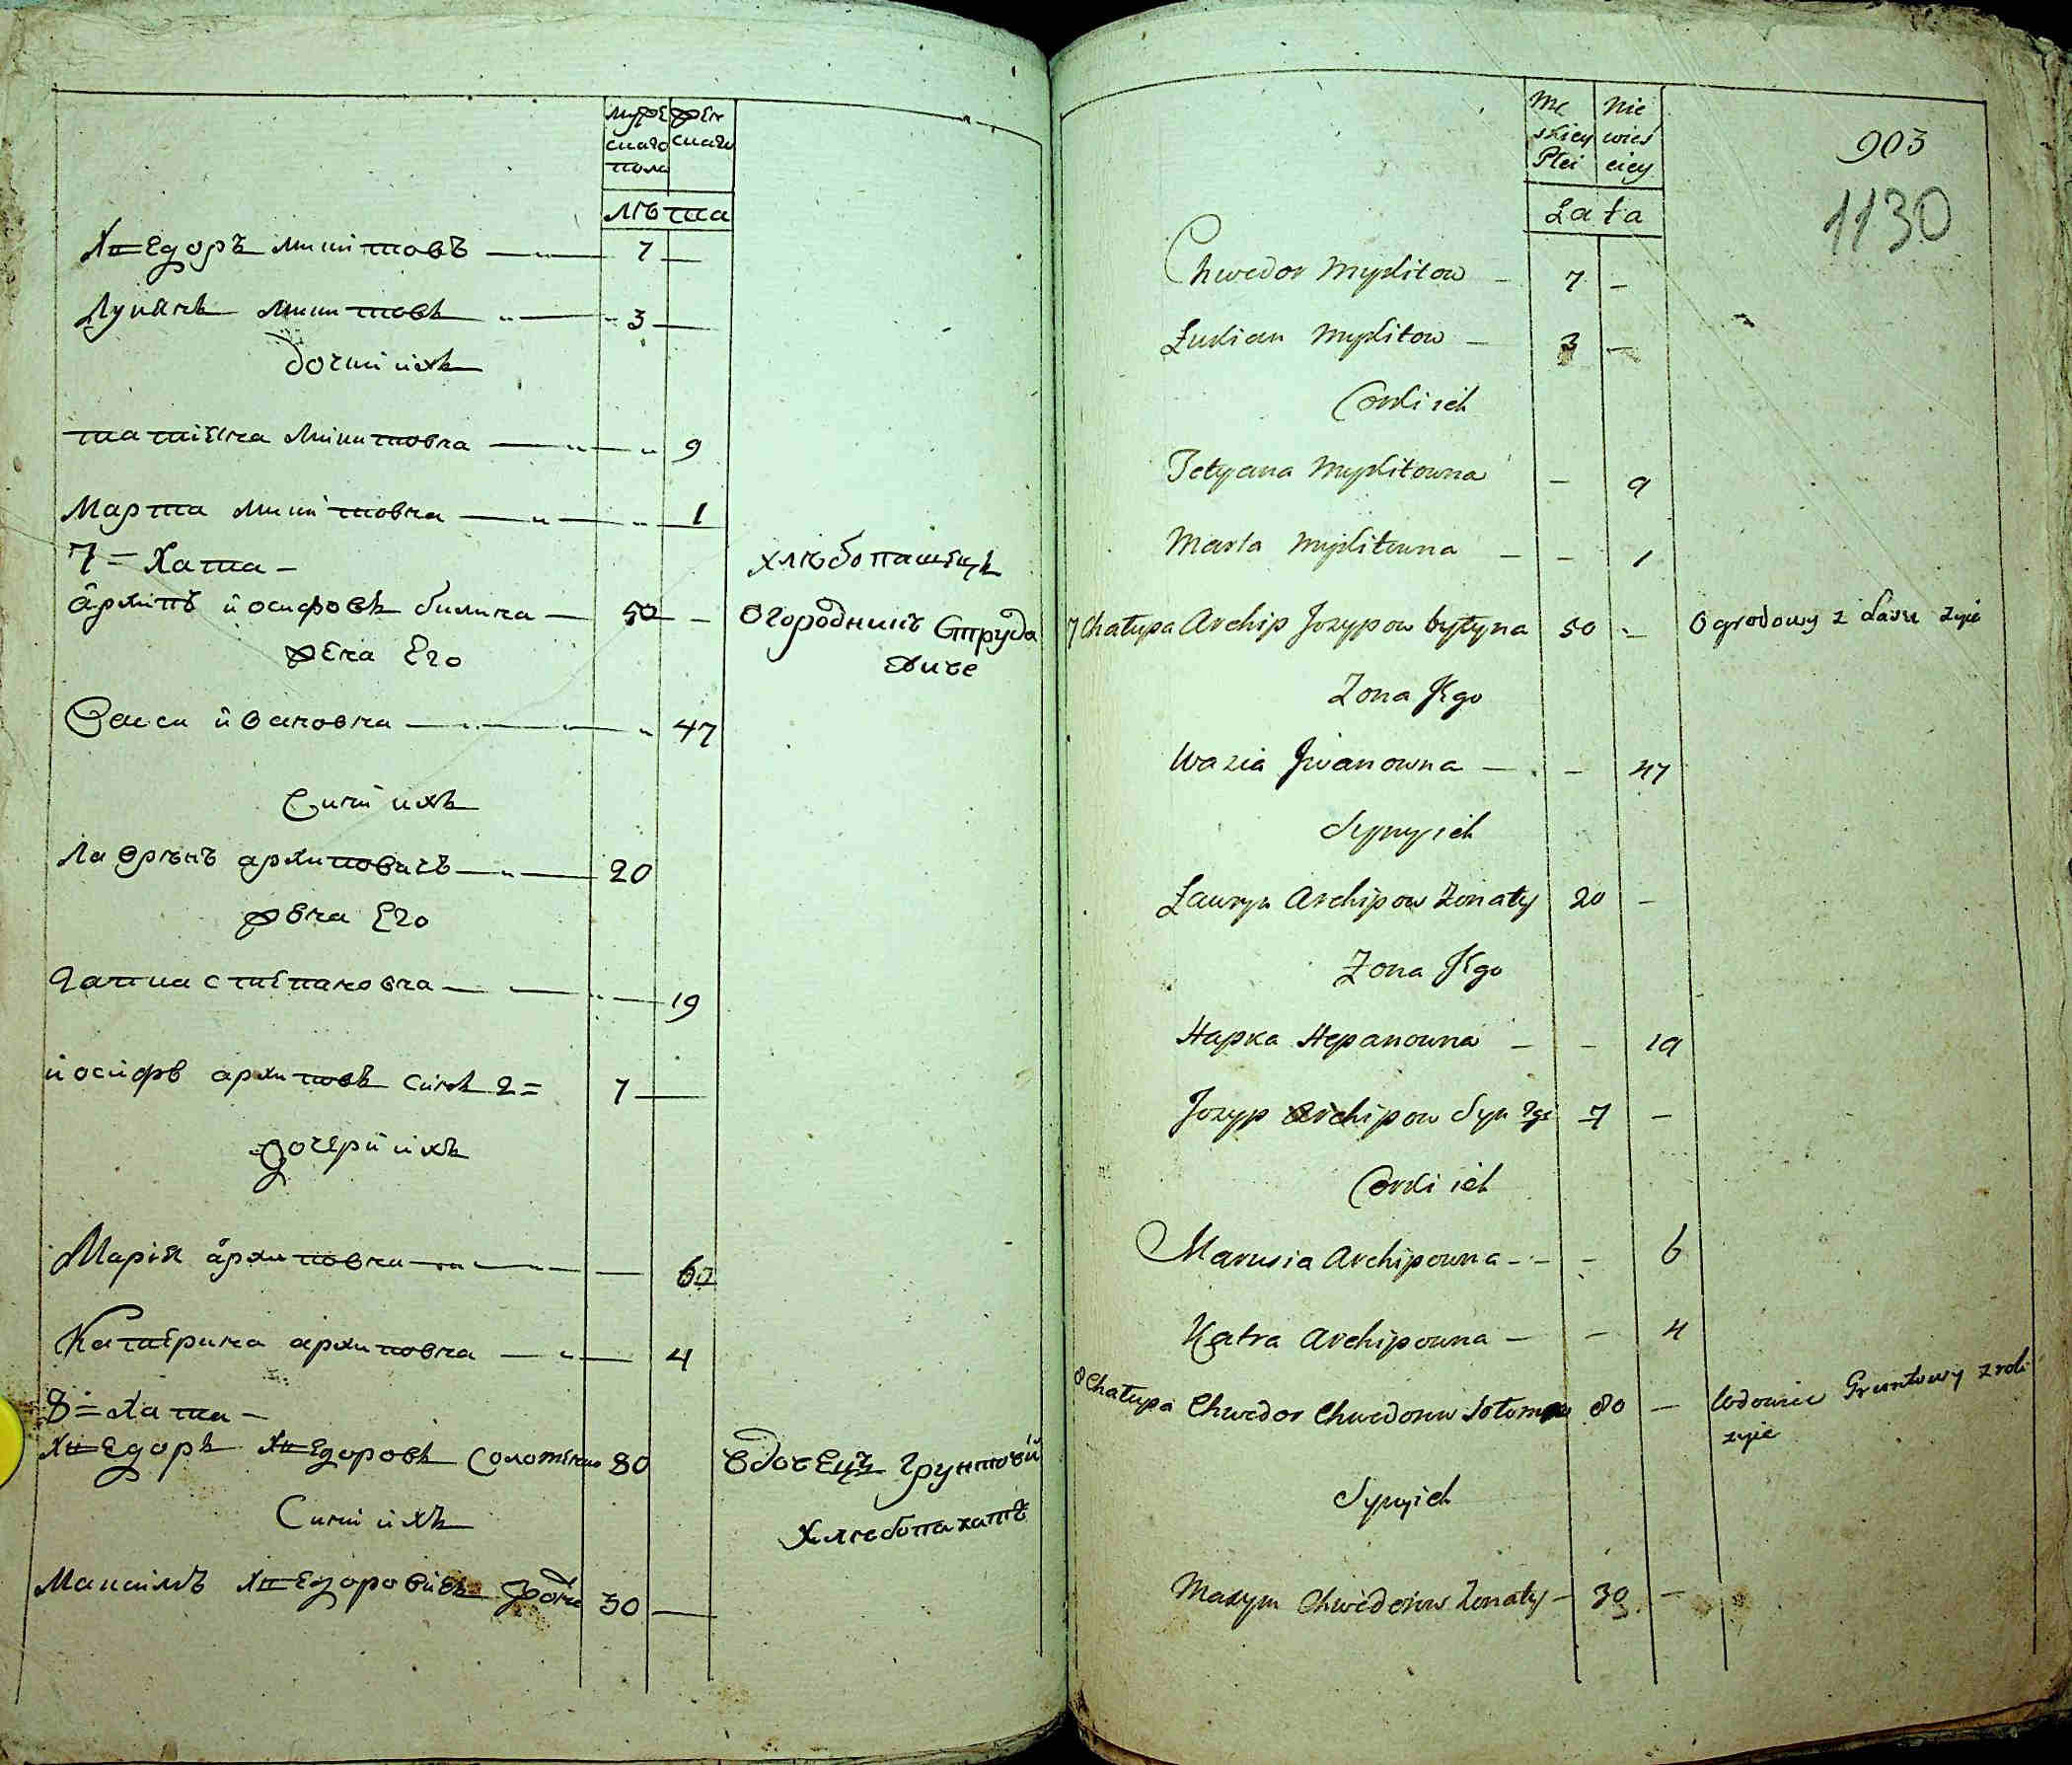 мужескаго пола
женскаго
лѣта
Хтедоръ микитовъ 7 —
Лукянъ микитовъ 3 —
дочкі ихъ
татіяна микитовна 9
Марта микитовна 1
7 = Хата –
архипъ іосифовъ билина 50 –
хлѣбопашецъ
огородникъ Струда живе
жена Его
Васса ивановна 47
Сини ихъ
Лаврѣнъ архиповичъ 20
жена Его
Гапка степановна 19
иосифъ архиповъ синъ 2 = 7 —
дочери ихъ
Марія архиповна 6
Катерина архиповна 4
8 = Хата –
Хтедоръ Хтедоровъ 80
вдовецъ грунтовій
Сини ихъ
хлѣбопахатъ
Максимъ Хтедоровичъ 30 —
Męskiey Płci
Niewiesciey
Lata
903
1130
Chwedor Mykitow – 7 –
Łukian Mykitow – 3 –
Corki ich
Tetyana Mykitowna – 9
Marta Mykitowna – – 1
7 Chałupa Archip Jozypow byłyna 50 – Ogrodowy z żyie
Zona Jego
Wazia Jwanowna – – 47
Synyich
Ławryn Archipow Zonaty 20 –
Zona Jego
Hapka Stepanowna – – 19
Jozyp Archipow Syn 2gi 7 –
Corki ich
Marusia Archipowna – – 6
Katra Archipowna – – 4
8 Chałupa Chwedor Chwedorow 80 – Wdowiec Gruntowy z roli
żyie
Synyich
Maxym Chwedorow Zonaty – 30 –